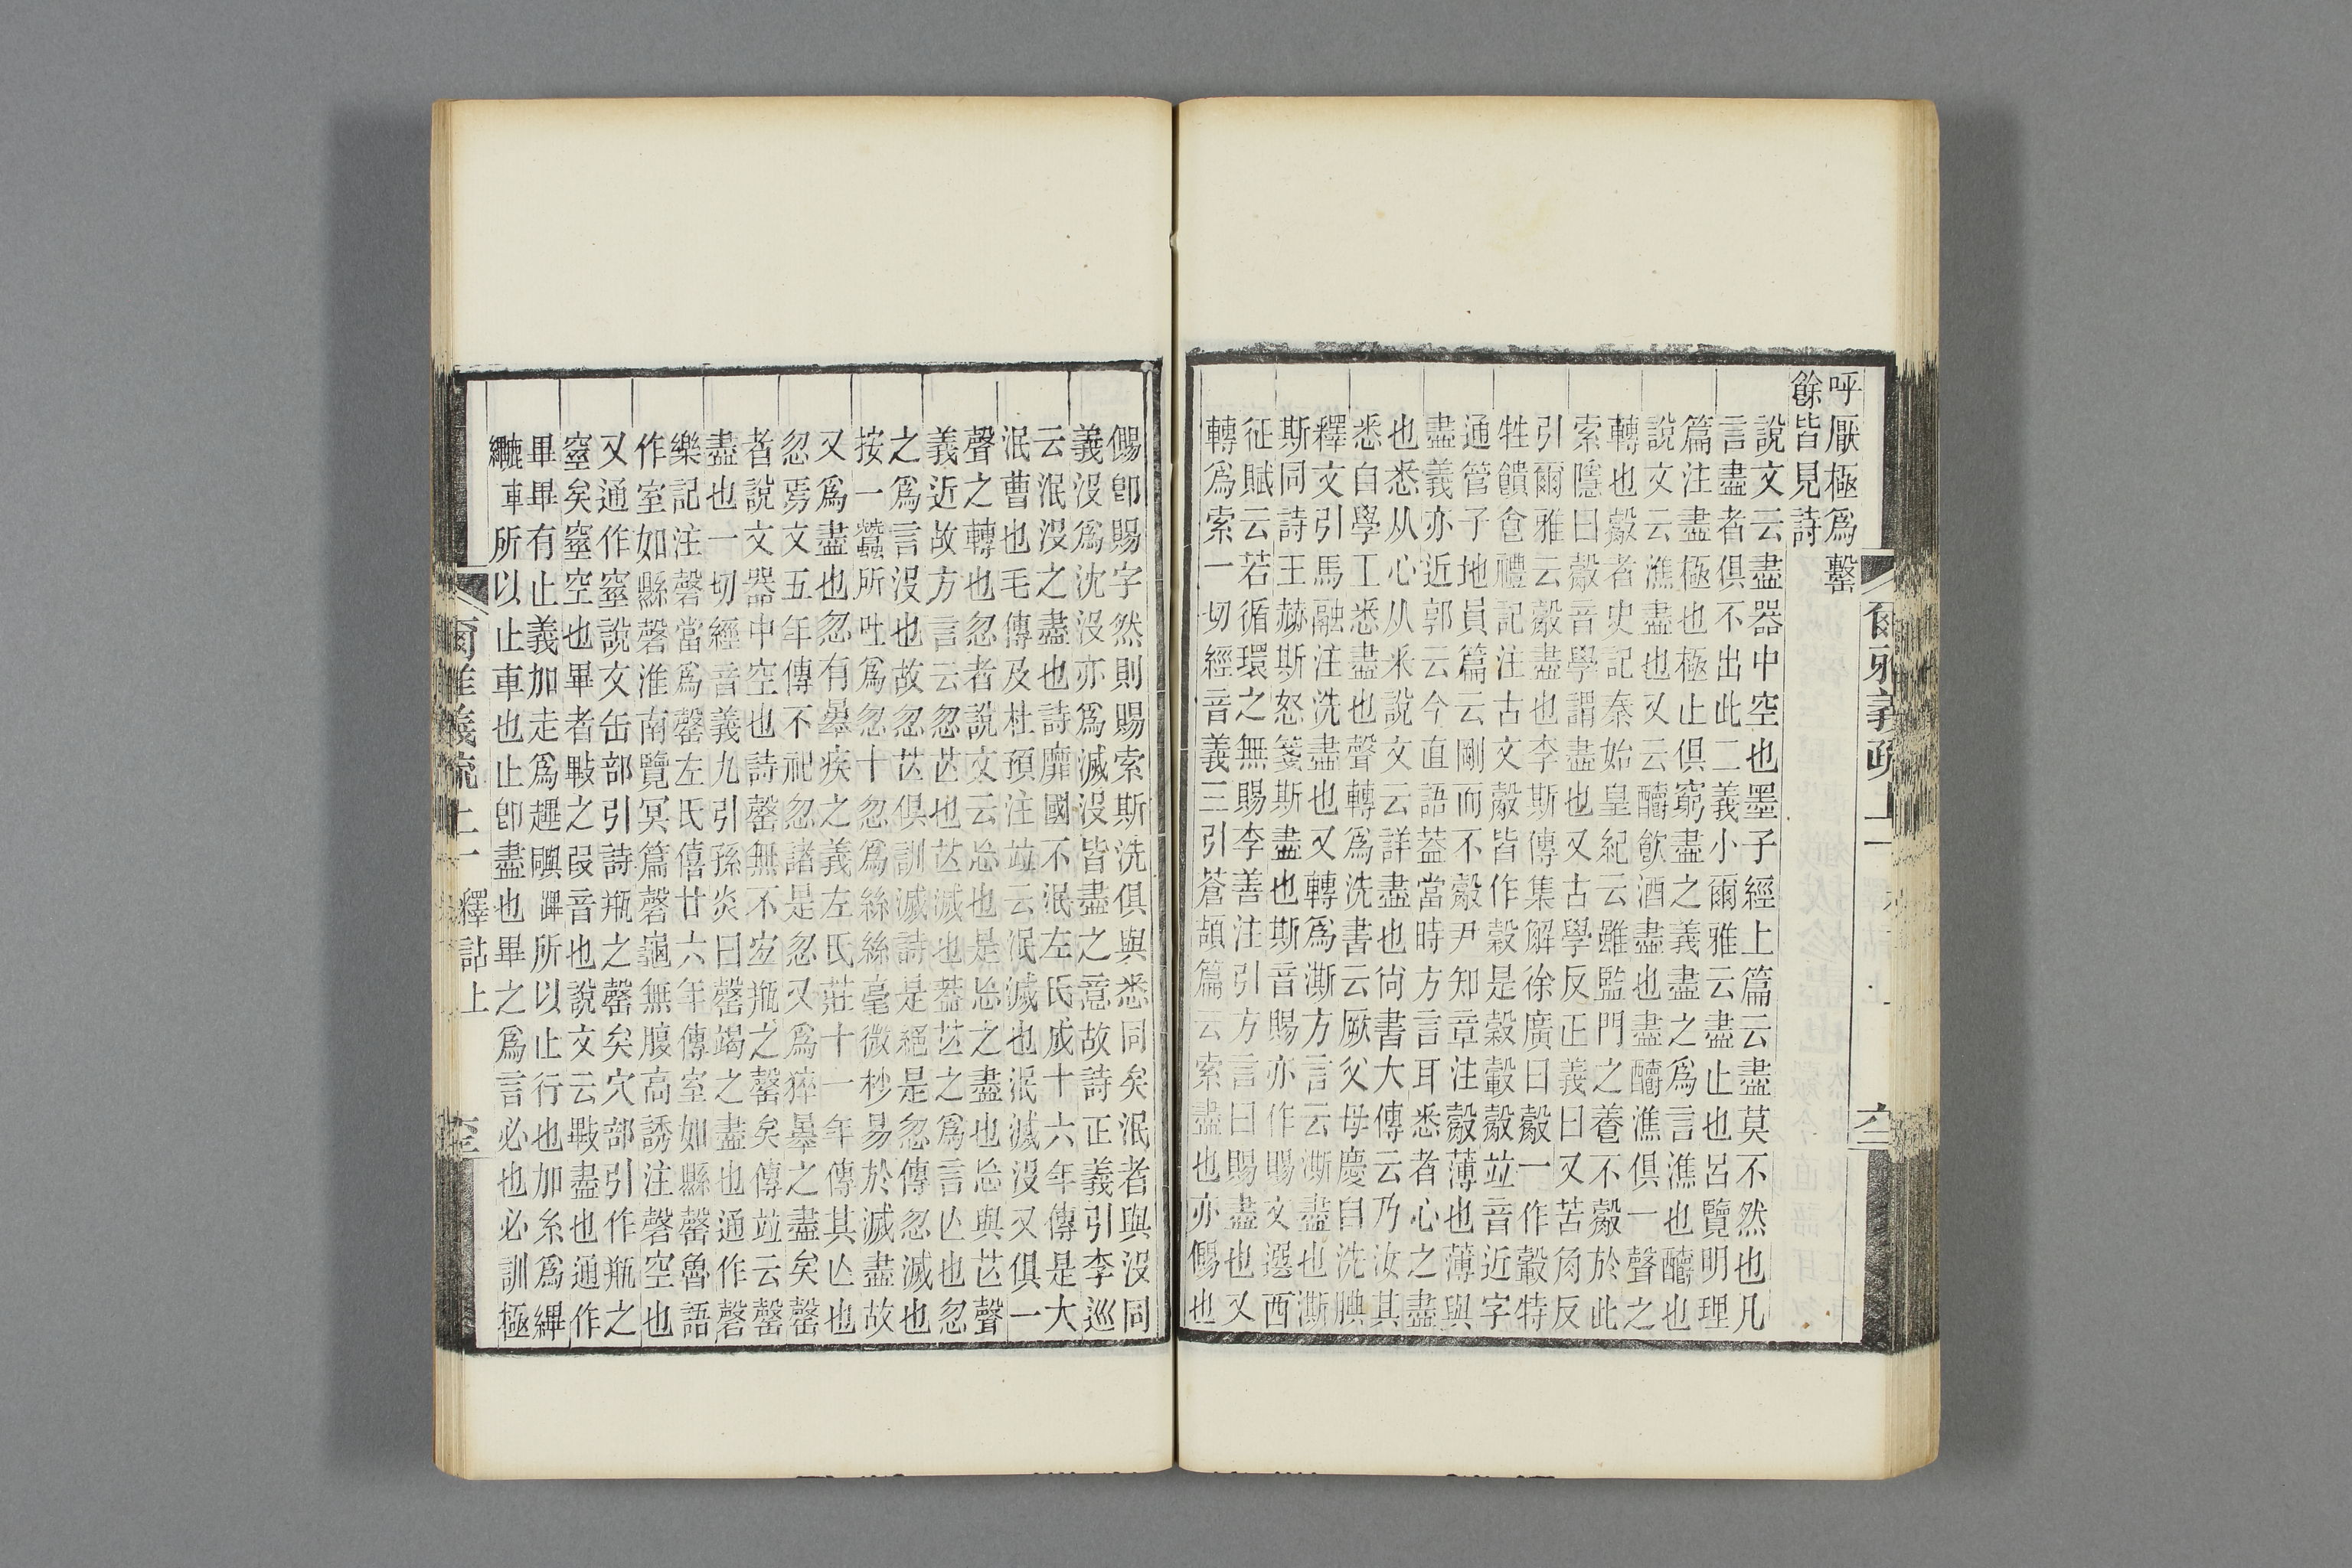 呼厭極爲罄
餘皆見詩
說文云盡器中空也墨子經上篇云盡莫不然也凡
言盡者俱不出此二義小爾雅云盡止也呂覽明理
篇注盡極也極止俱窮盡之義盡之爲言漅也釂也
說文云漅盡也又云釂飮酒盡也盡釂漅俱一聲之
轉也㱿者史記秦始皇紀云雖監門之養不㱿於此
索隱曰㱿音學謂盡也又古學反正義曰又苦角反
引爾雅云㱿盡也李斯傳集解徐廣曰㱿一作㲄特
牲饋食禮記注古文㱿皆作穀是穀㲄㱿竝音近字
通管子地員篇云剛而不㱿尹知章注㱿薄也薄與
盡義亦近郭云今直語葢當時方言耳悉者心之盡
也悉从心从釆說文云詳盡也尙書大傳云乃汝其
悉自學工悉盡也聲轉爲洗書云厥父母慶自洗腆
釋文引馬融注洗盡也又轉爲澌方言云澌盡也澌
斯同詩王赫斯怒箋斯盡也斯音賜亦作賜文選西
征賦云若循環之無賜李善注引方言曰賜盡也又
轉爲索一切經音義三引蒼頡篇云索盡也亦儩也
儩卽賜字然則賜索斯洗俱與悉同矣泯者與沒同
義沒爲沈沒亦爲滅沒皆盡之意故詩正義引李巡
云泯沒之盡也詩靡國不泯左氏成十六年傳是大
泯曹也毛傳及杜預注竝云泯滅也泯滅沒又俱一
聲之轉也忽者說文云忘也是忘之盡也忘與亾聲
義近故方言云忽芒也芒滅也葢芒之爲言亾也忽
之爲言沒也故忽芒俱訓滅詩是絕是忽傳忽滅也
按一蠶所吐爲忽十忽爲絲絲毫微杪易於滅盡故
又爲盡也忽有暴疾之義左氏莊十一年傳其亾也
忽焉文五年傳不祀忽諸是忽又爲猝暴之盡矣罄
者說文器中空也詩罄無不宜瓶之罄矣傳竝云罄
盡也一切經音義九引孫炎曰罄竭之盡也通作磬
樂記注磬當爲罄左氏僖廿六年傳室如縣罄魯語
作室如縣磬淮南覽冥篇磬龜無腹高誘注磬空也
又通作窒說文缶部引詩瓶之罄矣穴部引作瓶之
窒矣窒空也畢者㪤之叚音也說文云㪤盡也通作
畢畢有止義加走爲趩䠋蹕所以止行也加糸爲縪
䌰車所以止車也止卽盡也畢之爲言必也必訓極
爾雅義疏上一 釋詁上
爾雅義疏上一